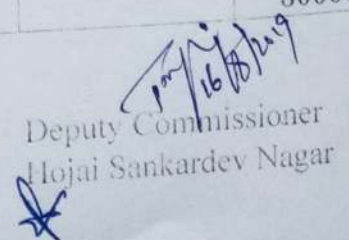 16/8/2019
Deputy Commissioner
Hojai Sankardev Nagar